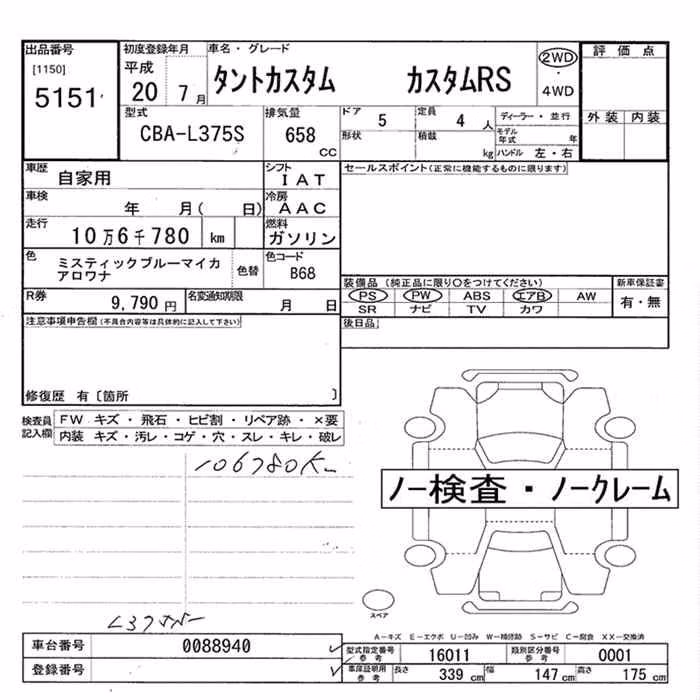 出品番号
[1150]
5151
初度登録年月
平成
20 7月
車名・グレード
タントカスタム カスタムRS
2WD
・
4WD
評価点
外装 内装
型式
CBA-L375S
排気量
658
CC
ドア
5
定員
4 人
形状
積載
kg
ディーラー・並行
モデル
年式 年
ハンドル 左・右
車歴
自家用
シフト
IAT
セールスポイント(正常に機能するものに限ります)
車検
年 月( 日)
冷房
AAC
走行
10万6千780 km
燃料
ガソリン
色
ミスティックブルーマイカ
アロワナ
色替
色コード
B68
装備品 (純正品に限り○をつけてください)
PS PW ABS エアB AW
SR ナビ TV カワ
新車保証書
有・無
R券
9,790 円
名変通知期限
月 日
後日品
注意事項申告欄(不具合内容等は具体的に記入して下さい)
修復歴 有〔箇所 〕
検査員
記入欄
FW キズ・飛石・ヒビ割・リペア跡・×要
内装 キズ・汚レ・コゲ・穴・スレ・キレ・破レ
106780K
ノー検査・ノークレーム
スペア
A−キズ E−エクボ U−凹み W−補修跡 S−サビ C−腐食 XX−交換済
車台番号
0088940
登録番号
型式指定番号
参考
16011
類別区分番号
参考
0001
車庫証明用
参考
長さ
339 cm
幅
147 cm
高さ
175 cm